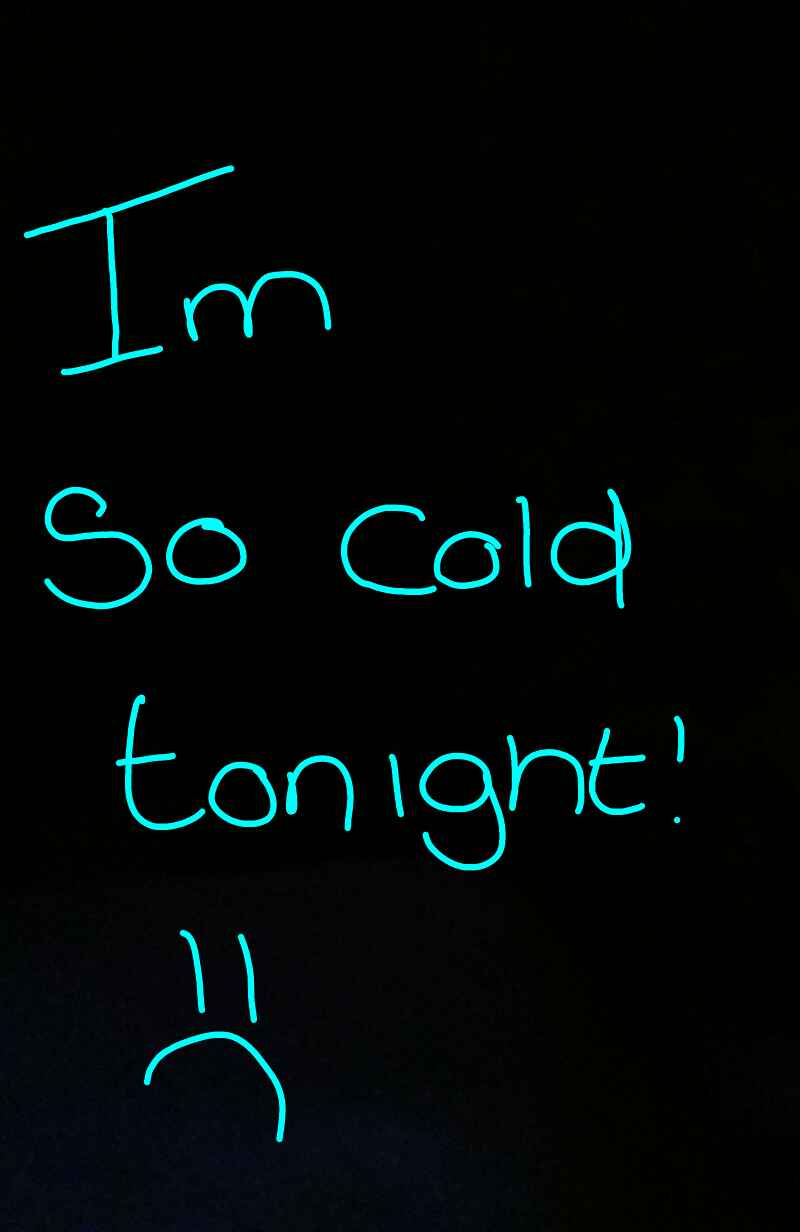 Im
So cold
tonight!